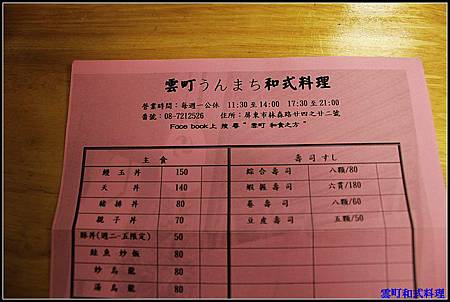 雲町うんまち和式料理
營業時間：每週一公休 11:30至14:00 17:30至21:00
番號：08-7212526 住所：屏東市林森路廿四之廿二號
Face book上 搜 尋 " 雲町 和食之方 "
主食 壽司すし
鰻玉丼 150 綜合壽司 八顆/80
天丼 140 蝦握壽司 六貫/180
豬排丼 80 卷壽司 八顆/60
親子丼 70 豆皮壽司 五顆/50
豚丼(週二-五限定) 50
鮭魚炒飯 80
炒烏龍 80
湯烏龍 80
雲町和式料理